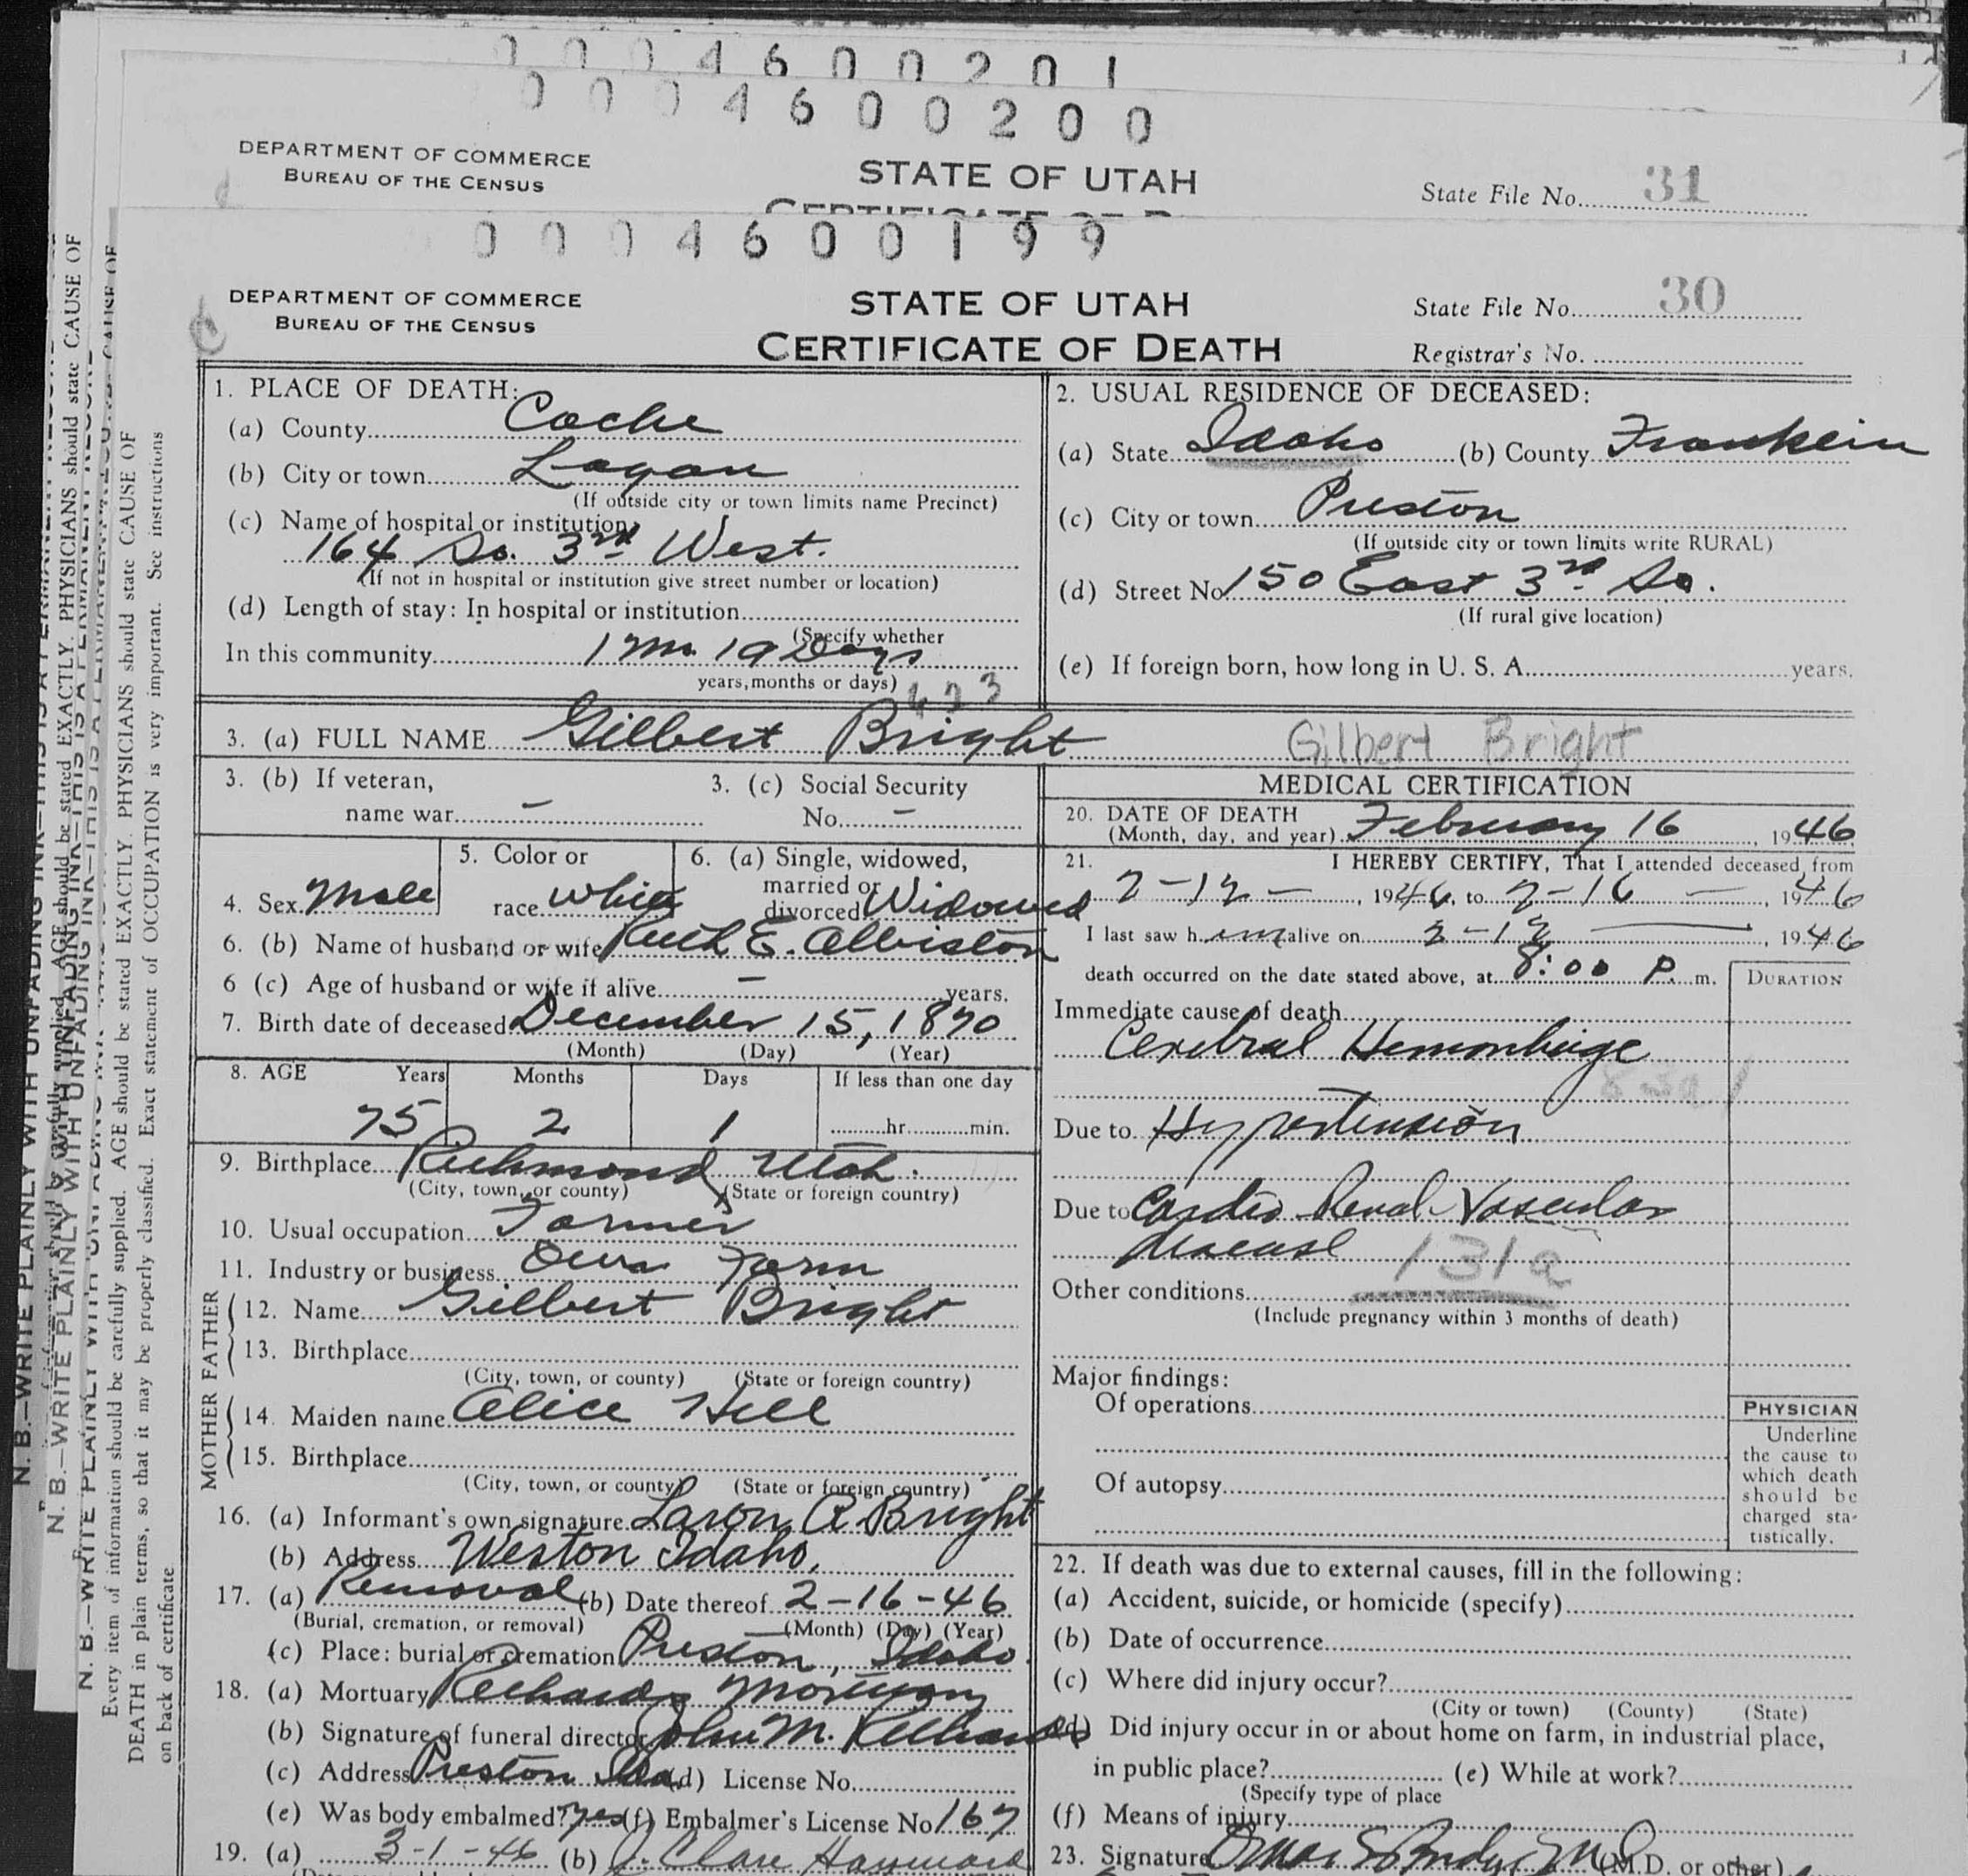 0004600201
0004600200
DEPARTMENT OF COMMERCE
BUREAU OF THE CENSUS
STATE OF UTAH
State File No. 31
0004600199
DEPARTMENT OF COMMERCE
BUREAU OF THE CENSUS
STATE OF UTAH
CERTIFICATE OF DEATH
State File No. 30
Registrar's No.
1. PLACE OF DEATH:
(a) County Cache
(b) City or town Logan
(If outside city or town limits name Precinct)
(c) Name of hospital or institution
164 So. 3rd West.
(If not in hospital or institution give street number or location)
(d) Length of stay: In hospital or institution
(Specify whether
In this community 1 Mo. 19 Days
years, months or days)
2. USUAL RESIDENCE OF DECEASED:
(a) State Idaho (b) County Franklin
(c) City or town Preston
(If outside city or town limits write RURAL)
(d) Street No. 150 East 3rd So.
(If rural give location)
(e) If foreign born, how long in U. S. A. years.
3. (a) FULL NAME Gilbert Bright Gilbert Bright
3. (b) If veteran,
name war –
3. (c) Social Security
No. –
4. Sex Male
5. Color or
race White
6. (a) Single, widowed,
married or
divorced Widowed
6. (b) Name of husband or wife Ruth E. Albiston
6 (c) Age of husband or wife if alive – years.
7. Birth date of deceased December 15, 1870
(Month) (Day) (Year)
8. AGE Years Months Days If less than one day
75 2 1 hr. min.
9. Birthplace Richmond Utah.
(City, town, or county) (State or foreign country)
10. Usual occupation Farmer
11. Industry or business Own Farm
FATHER
12. Name Gilbert Bright
13. Birthplace
(City, town, or county) (State or foreign country)
MOTHER
14. Maiden name Alice Hill
15. Birthplace
(City, town, or county) (State or foreign country)
16. (a) Informant's own signature Laron A Bright
(b) Address Weston Idaho.
17. (a) Removal (b) Date thereof 2-16-46
(Burial, cremation, or removal) (Month) (Day) (Year)
(c) Place: burial or cremation Preston, Idaho.
18. (a) Mortuary Richards Mortuary
(b) Signature of funeral director John M. Richards
(c) Address Preston Ida (d) License No.
(e) Was body embalmed? yes (f) Embalmer's License No. 167
19. (a) 3-1-46 (b) J. Clare Hayward
MEDICAL CERTIFICATION
20. DATE OF DEATH
(Month, day, and year) February 16, 1946
21. I HEREBY CERTIFY, That I attended deceased from
2-12 –, 1946, to 2-16 –, 1946
I last saw him alive on 2-12 –, 1946
death occurred on the date stated above, at 8:00 P. m.
DURATION
Immediate cause of death
Cerebral Hemorrhage
Due to Hypertension
Due to Cardio Renal Vascular
disease 131a
Other conditions
(Include pregnancy within 3 months of death)
Major findings:
Of operations
Of autopsy
PHYSICIAN
Underline
the cause to
which death
should be
charged sta-
tistically.
22. If death was due to external causes, fill in the following:
(a) Accident, suicide, or homicide (specify)
(b) Date of occurrence
(c) Where did injury occur?
(City or town) (County) (State)
(d) Did injury occur in or about home on farm, in industrial place,
in public place? (e) While at work?
(Specify type of place
(f) Means of injury
23. Signature (M.D. or other)
N. B.—WRITE PLAINLY WITH UNFADING INK—THIS IS A PERMANENT RECORD
Every item of information should be carefully supplied. AGE should be stated EXACTLY. PHYSICIANS should state CAUSE OF
DEATH in plain terms, so that it may be properly classified. Exact statement of OCCUPATION is very important. See instructions
on back of certificate